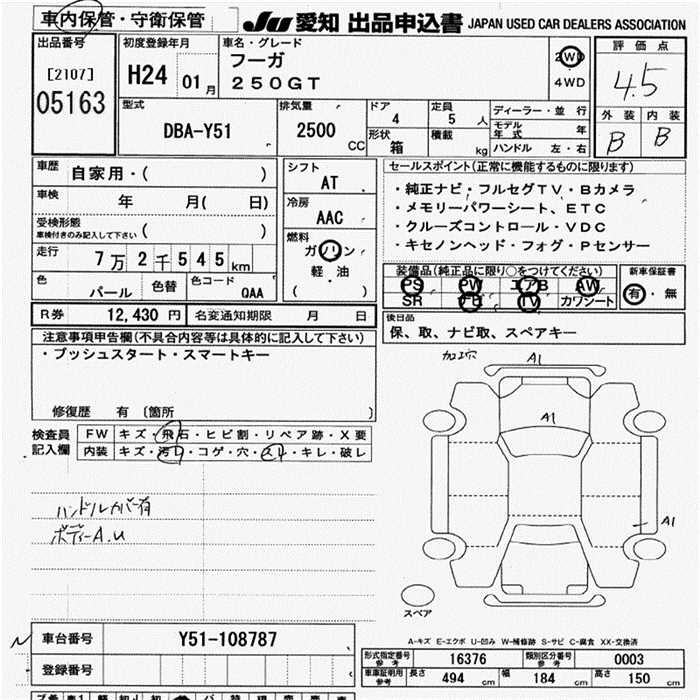 車内保管・守衛保管
JU 愛知 出品申込書 JAPAN USED CAR DEALERS ASSOCIATION
出品番号
[2107]
05163
初度登録年月
H24 01月
車名・グレード
フーガ
250GT
2WD
4WD
評価点
4.5
外装 内装
B B
型式
DBA-Y51
排気量
2500
CC
ドア
4
定員
5 人
形状
箱
積載
kg
ディーラー・並行
モデル年式 年
ハンドル 左・右
車歴
自家用・( )
車検
年 月( 日)
受検形態
車検付きのみ記入して下さい ( )
走行
7万2千545km
色
パール
色替
色コード
QAA
シフト
AT
冷房
AAC
燃料
ガソリン
軽・油
( )
セールスポイント(正常に機能するものに限ります)
・純正ナビ・フルセグTV・Bカメラ
・メモリーパワーシート、ETC
・クルーズコントロール・VDC
・キセノンヘッド・フォグ・Pセンサー
装備品(純正品に限り○をつけてください)
PS PW エアB AW
SR ナビ TV カワシート
新車保証書
有・無
R券 12,430円 名変通知期限 月 日
後日品
保、取、ナビ取、スペアキー
注意事項申告欄(不具合内容等は具体的に記入して下さい)
・プッシュスタート・スマートキー
修復歴 有 〔箇所 〕
検査員記入欄
FW キズ・飛石・ヒビ割・リペア跡・X要
内装 キズ・汚レ・コゲ・穴・スレ・キレ・破レ
ハンドルカバー有
ボディーA.U
A1
A1
A1
スペア
A-キズ E-エクボ U-凹み W-補修跡 S-サビ C-腐食 XX-交換済
車台番号 Y51-108787
登録番号
形式指定番号 参考 16376 類別区分番号 参考 0003
車証明用参考 長さ 494cm 幅 184cm 高さ 150cm